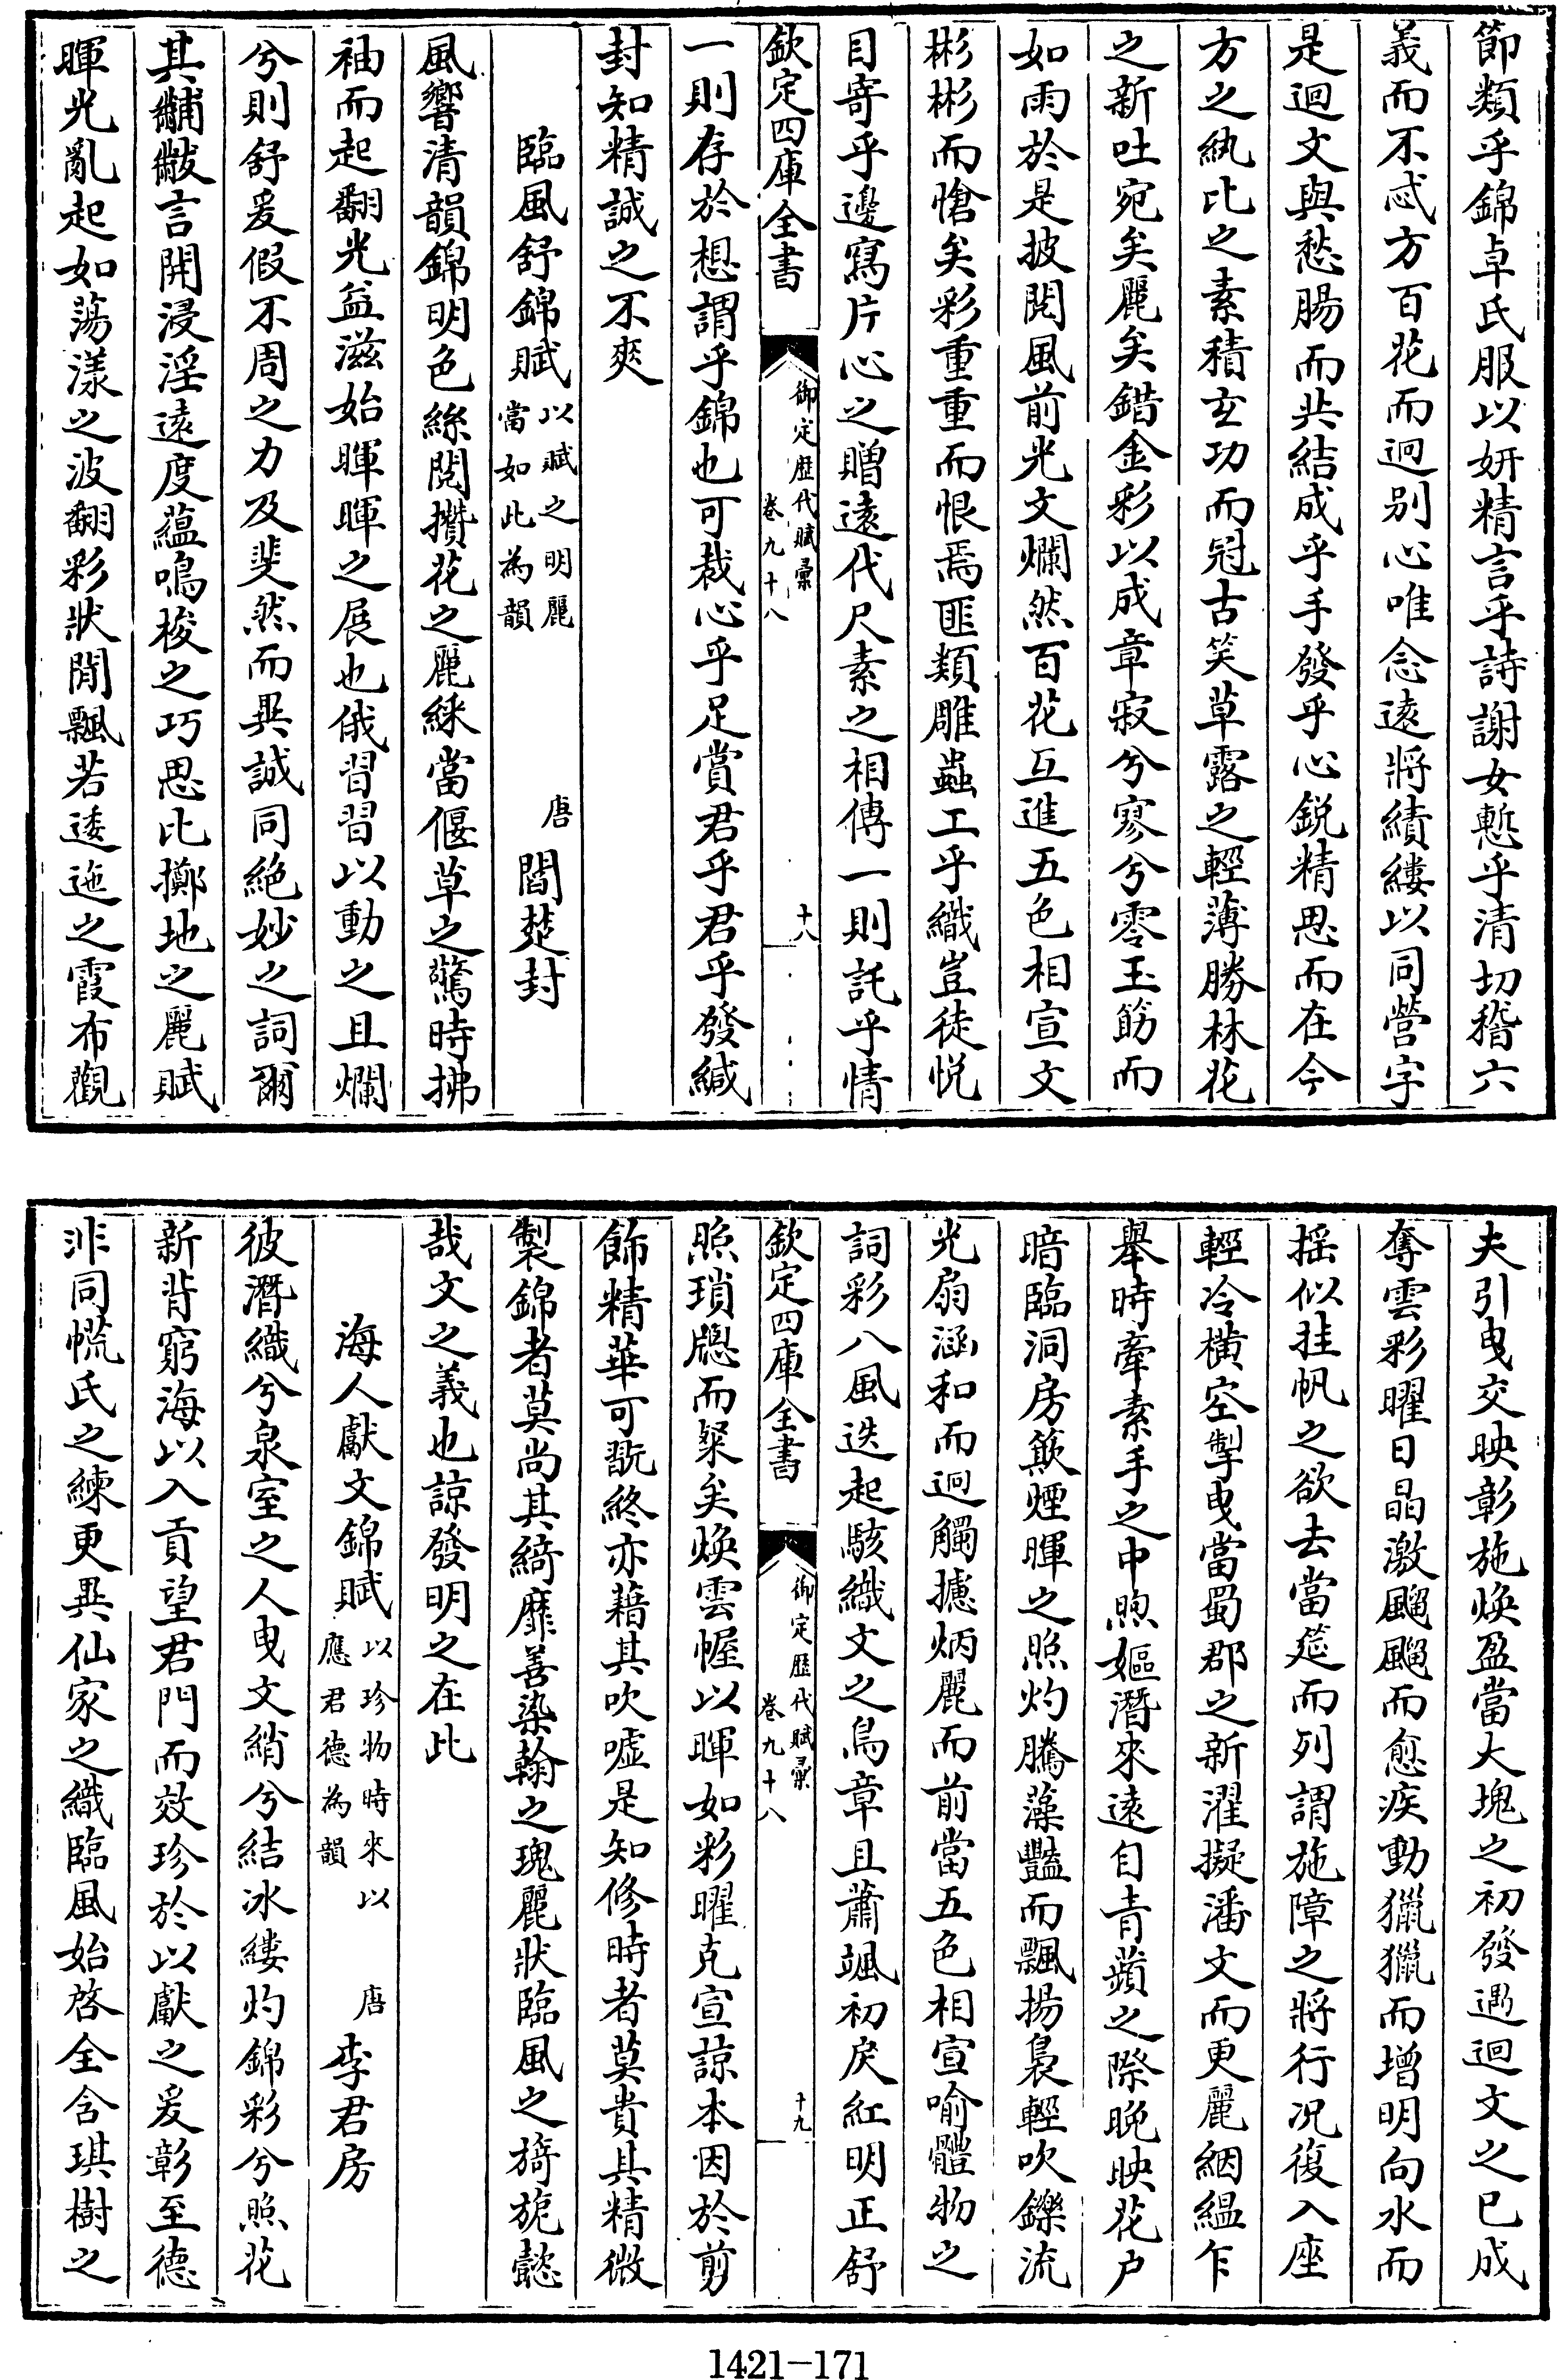 節類乎錦卓氏服以妍精言乎詩謝女慙乎清切稽六
義而不忒方百花而迥别心唯念遠將績縷以同營字
是迴文與愁腸而共結成乎手發乎心鋭精思而在今
方之紈比之素積玄功而冠古笑草露之輕薄勝林花
之新吐宛矣麗矣錯金彩以成章寂兮寥兮零玉筯而
如雨於是披閲風前光文爛然百花互進五色相宣文
彬彬而愴矣彩重重而恨焉匪類雕蟲工乎織豈徒悦
目寄乎邊寫片心之贈遠代尺素之相傳一則託乎情
欽定四庫全書
御定歴代賦彙
卷九十八
十八
一則存於想謂乎錦也可裁心乎足賞君乎君乎發緘
封知精誠之不爽
臨風舒錦賦
以賦之明麗
當如此為韻
唐
閻楚封
風響清韻錦明色絲閲攢花之麗綵當偃草之驚時拂
袖而起翻光益滋始暉暉之展也俄習習以動之且爛
兮則舒爰假不周之力及斐然而異誠同絶妙之詞爾
其黼黻言開浸淫遠度蘊鳴梭之巧思比擲地之麗賦
暉光亂起如蕩漾之波翻彩狀閒飄若逶迤之霞布觀
夫引曳交映彰施焕盈當大塊之初發遇迴文之已成
奪雲彩曜日晶激颸颸而愈疾動獵獵而增明向水而
摇似挂帆之欲去當筵而列謂施障之將行况復入座
輕冷横空掣曳當蜀郡之新濯擬潘文而更麗絪緼乍
舉時牽素手之中煦嫗潛來遠自青蘋之際晩映花户
暗臨洞房簸煙暉之照灼騰藻豔而飄揚裊輕吹鑠流
光扇涵和而迥觸攄炳麗而前當五色相宣喻體物之
詞彩八風迭起駭織文之鳥章且蕭颯初戾紅明正舒
欽定四庫全書
御定歴代賦彙
卷九十八
十九
照瑣牕而粲矣焕雲幄以暉如彩曜克宣諒本因於剪
飾精華可翫終亦藉其吹嘘是知修時者莫貴其精微
製錦者莫尚其綺靡善染翰之瑰麗狀臨風之旖旎懿
哉文之義也諒發明之在此
海人獻文錦賦
以珍物時來以
應君德為韻
唐
李君房
彼潛織兮泉室之人曳文綃兮結冰縷灼錦彩兮照花
新背窮海以入貢望君門而效珍於以獻之爰彰至德
非同㡆氏之練更異仙家之織臨風始啓全含琪樹之
1421-171